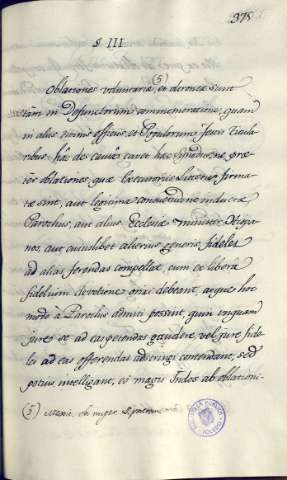 375
§ III
(5)
Oblationes voluntariæ, et devotæ sunt
tam in Defunctorum commemoratione, quam
in aliis divinis officiis, et Popularum festis Titula
ribus: hac de causa cavet hæc Synodus ne præ
ter oblationes, quæ executoriis Litteris firma
tæ sint, aut legitima consuetudine inductæ
Parochus, aut alius Ecclesiæ minister Indige
nos, aut cuiuslibet alterius generis fideles
ad alias ferendas compellat, cum ex libera
fidelium devotione oriri debeant, atque hoc
modo a Parochis admitti possunt, quin unquam
jure se ad eas petendas gaudere, vel jure fide
les ad eas offerendas adstringi contendant, sed
potius intelligant, ei magis Indos ab oblationi-
(5)